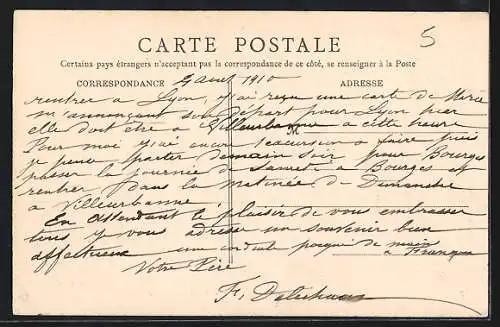 CARTE POSTALE
5
Certains pays étrangers n'acceptant pas la correspondance de ce côté, se renseigner à la Poste
CORRESPONDANCE
ADRESSE
9 aout 1910
rentree a Lyon, j'ai reçu une carte de Marie
m'annonçant son départ pour Lyon hier
elle doit etre a Villeurbanne a cette heure
Pour moi j'ai encore 1 excursion a faire puis
je peux partir demain soir pour Bourges
passer la journée de samedi a Bourges et
rentrer dans la matinée de Dimanche
a Villeurbanne
En attendant le plaisir de vous embrasser
tous j vous adresse un souvenir bien
affectueux une cordiale poignée de main
a François
Votre Père
F.